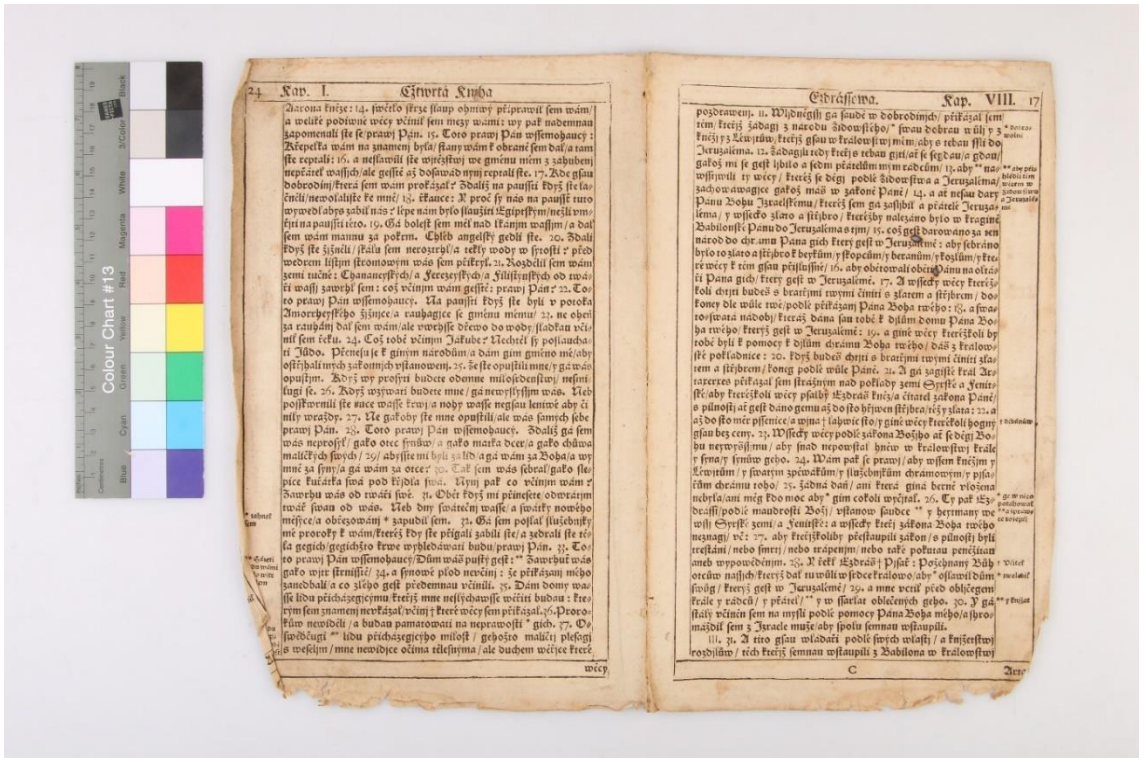 Colour Chart #13
Blue
Cyan
Green
Yellow
Red
Magenta
White
3/Color
Black
Centimetres
24 Kap. I. Cžtwrtá Knýha
Aarona kněze: 14. swětlo skrze slaup ohniwý připrawil sem wám/
a weliké podiwné wěcy včinil sem mezy wámi: wy pak nademnau
zapomenuli ste se/prawj Pán. 15. Toto prawj Pán wssemohaucý:
Křepelka wám na znamenj byla/stany wám k obraně sem dal/a tam
ste reptali: 16. a neslawili ste wjtězstwj we gménu mém z zahubenj
nepřátel wassjch/ale gesstě až dosawád nynj reptali ste. 17. Kde gsau
dobrodinj/která sem wám prokázal? Zdaliž na paussti když ste la-
čněli/newolaliste ke mně/ 18. řkauce: Y proč sy nás na paussť tuto
wywedl abys zabil nás: lépe nám bylo slaužiti Egiptským/nežli vm-
řjti na paussti této. 19. Gá bolest sem měl nad lkánjm wassjm/a dal
sem wám mannu za pokrm. Chléb angelský gedli ste. 20. Zdali
když ste žjžnili/skálu sem neroztrhl/a tekly wody w sytosti: před
wedrem listjm stromowým wás sem přikryl. 21. Rozdělil sem wám
zemi tučné: Chananeyských/a Ferezeyských/a Filistýnských od twá-
ři wassj zawrhl sem: což včinjm wám gesstě: prawj Pán: 22. To-
to prawj Pán wssemohaucý. Na paussti když ste byli v potoka
Amorrheyského žjžnjce/a rauhagjce se gménu mému/ 23. ne oheň
za rauhánj dal sem wám/ale vwrhsse dřewo do wody/sladkau vči-
nil sem řeku. 24. Což tobě včinjm Jakube? Nechtěl sy poslaucha-
ti Jůdo. Přenesu se k giným národům/a dám gim gméno mé/aby
ostřjhali mých zákonnjch vstanowenj. 25. Že ste opustili mne/y gá wás
opustjm. Když wy prosyti budete odemne milosrdenstwj/ nesmi-
lugi se. 26. Když wzýwati budete mne/gá newyslyssjm wás. Neb
posskwrnili ste ruce wasse krwj/a nohy wasse negsau leniwé aby či-
nily wraždy. 27. Ne gakoby ste mne opustili/ale wás samých sebe
prawj Pán. 28. Toto prawj Pán wssemohaucý. Zdaliž gá sem
wás neprosyl/ gako otec synůw/a gako matka dcer/a gako chůwa
maličkých swých/ 29/abyste mi byli za lid/a gá wám za Boha/a wy
mně za syny/a gá wám za otce: 30. Tak sem wás sebral/gako sle-
pice kuřátka swá pod křjdla swá. Nynj pak co včinjm wám:
Zawrhu wás od twáři swé. 31. Obět když mi přinesete odwrátjm
twář swau od wás. Neb dny swátečný wasse/a swátky nowého
měsýce/a obřezowánj * zapudil sem. 32. Gá sem poslal služebnjky
mé proroky k wám/kteréž kdy ste přigali zabili ste/a zedrali ste tě-
la gegich/gegichžto krwe wyhledáwati budu/prawj Pán. 33. To-
to prawj Pán wssemohaucý/Dům wás pustý gest: ** Zawrhu wás
gako wjtr strnissě/ 34. a synowé plod nevčinj: že přikázanj mého
zanedbali/a co zlého gest předemnau včinili. 35. Dám domy was-
sse lidu přicházegjcýmu/kteřjž mne neslýchawsse wěřiti budau: kte-
rým sem znamenj nevkázal/včinj † kteréž wěcy sem přikázal. 36. Proro-
kůw newiděli/a budau pamatowati na neprawosti * gich. 37. O-
swědčugi ** lidu přicházegjcýho milost / gehožto maličcý plesagj
s weseljm/mne newidjce očima tělesnýma/ale duchem wěřjce kteréž
wěcy
Ezdrássewa. Kap. VIII. 17
pozdrawenj. 11. Wjdněgssj gá saudě w dobrodinjch/ přikázal sem
těm/kteřjž žádagj z národu Židowského/ * swau dobrau wůlj y z
kněžj y z Léwjtůw/kteřjž gsau w králowstwj mém/aby s tebau ssli do
Jeruzaléma. 12. Žádagjli tedy kteřj s tebau gjti/ať se segdau/a gdau/
gakož mi se gest ljbilo a sedm přátelům mým rádcům/ 13. aby ** na-
wsstjwili ty wěcy/ kteréž se dějj podlé Židowstwa a Jeruzaléma/
zachowáwagjce gakož máš w zákoně Páně/ 14. a ať nesau dary
Pánu Bohu Izraelskému/ kteréž sem gá zasljbil a přátelé Jeruza-
léma/ y wssecko zlato a střjbro/ kteréžby nalezáno bylo w kragině
Babilonské Pánu do Jeruzaléma s tjm/ 15. což gest darowáno za ten
národ do chrámu Pána gich který gest w Jeruzalémě: aby sebráno
bylo to zlato a střjbro k beykům/y skopcům/y beranům/y kozlům/y kte-
réž wěcy k těm gsau přjslussné/ 16. aby obětowali oběti Pánu na oltá-
ři Pána gich/ který gest w Jeruzalémě. 17. A wssecky wěcy kteréž-
koli chtjti budeš s bratřjmi twými činiti s zlatem a střjbrem/ do-
koney dle wůle twé/podlé přikázanj Pána Boha twého: 18. a swa-
tosswatá nádobj/kteráž dána sau tobě k djlům domu Pána Bo-
ha twého/kterýž gest w Jeruzalémě: 19. a giné wěcy kteréžkoli by
tobě byli k pomocy k djlům chrámu Boha twého/ dáš z králow-
ské pokladnice: 20. když budeš chtjti s bratřjmi twými činiti zla-
tem a střjbrem/koneg podlé wůle Páně. 21. A gá zagisté král Ar-
taxerxes přikázal sem strážným nad poklady zemi Syrské a Fenit-
ské/aby kteréžkoli wěcy psalby Ezdráš kněz/a čitatel zákona Páně/
s pilnostj ať gest dáno gemu až do sto hřjwen střjbra/též y zlata: 22. a
až do sto měr pssenice/a wjna † lahwic sto/y giné wěcy kterékoli hogný
gsau bez ceny. 23. Wssecky wěcy podlé zákona Božjho ať se dějj Bo-
hu neywyžssjmu/ aby snad nepowstal hněw w králowstwj krále
y syna/y synůw geho. 24. Wám pak se prawj/ aby wssem kněžjm y
Léwjtům/ y swatým zpěwákům/y služebnjkům chrámowým/ y pjsa-
řům chrámu toho/ 25. žádná daň/ ani která giná berně wložena
nebyla/ani měg kdo moc aby * gim cokoli wyčjtal. 26. Ty pak Ez-
drássi/podlé maudrosti Božj/ vstanow saudce ** y heytmany we
wssj Syrské zemi/a Fenitské: a wssecky kteřj zákona Boha twého
neznagj/ vč: 27. aby kteřjžkoliby přestaupili zákon/s pilnostj byli
trestáni/ nebo smrtj/ nebo trápenjm/nebo také pokutau peněžitau
aneb wypowěděnjm. 28. Y řekl Ezdráš † Pjsař: Požehnaný Bůh
otcůw nassjch/kterýž dal tu wůli w srdce králowo/aby * oslawil dům
swůg/ kterýž gest w Jeruzalémě/ 29. a mne vctil před obljčegem
krále y rádců/ y přátel/ ** y w ssarlat oblečených geho. 30. Y gá
stálý včiněn sem na mysli podlé pomocy Pána Boha mého/a shro-
máždil sem z Izraele muže/aby spolu semnau wstaupili.
III. 31. A tito gsau wladaři podlé swých wlastj / a knjžetstwj
rozdjlůw/ těch kteřjž semnau wstaupili z Babilona w králowstwj
C